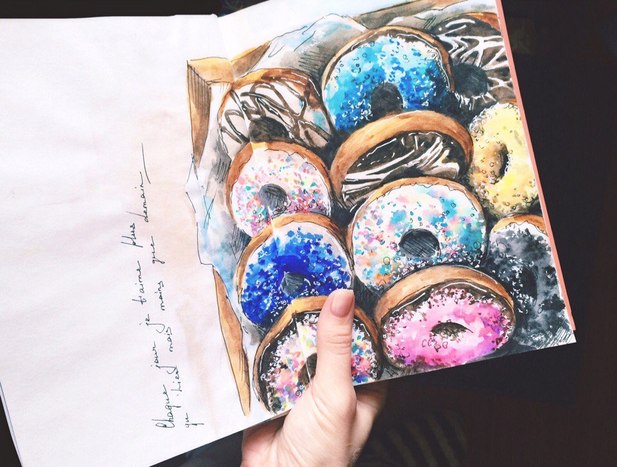 Chaque jour je t'aime plus
qu'hier mais moins que demain